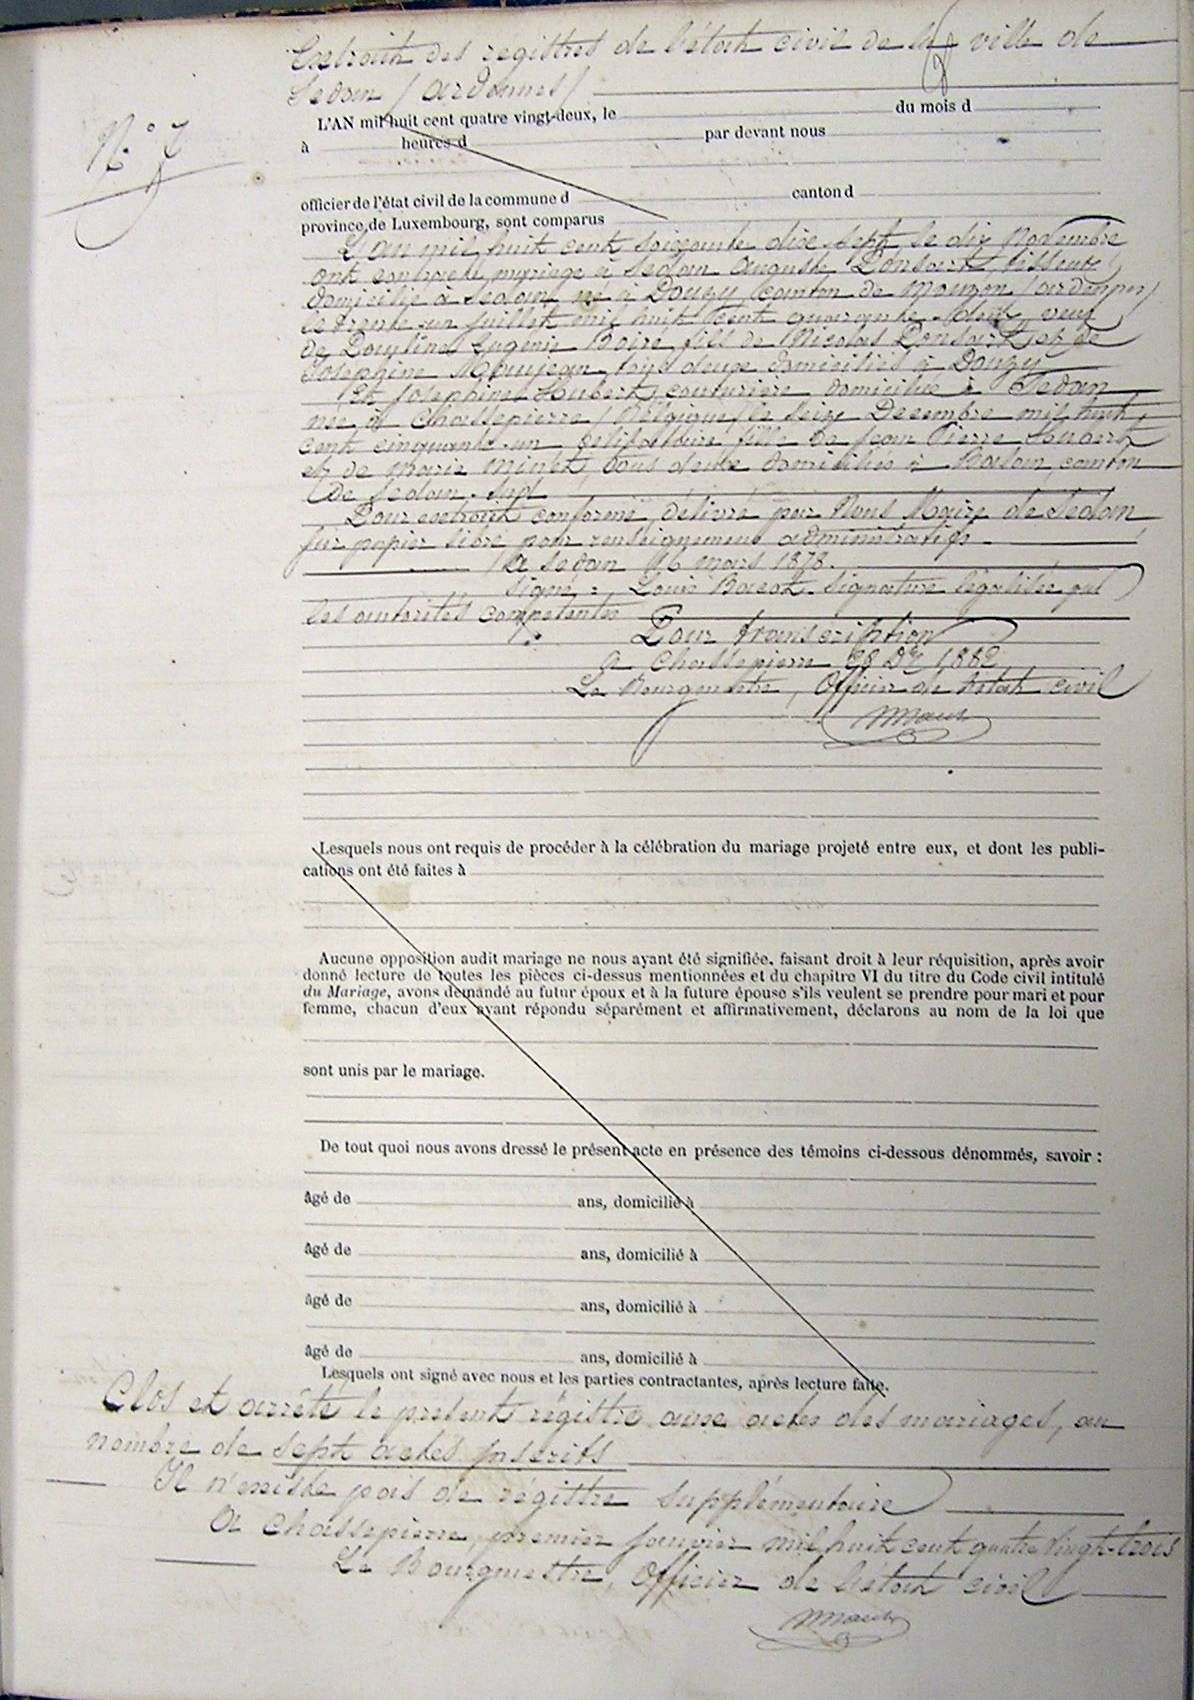 Extrait des registres de l'état civil de la ville de
Sedan (Ardennes)
N° 7
L'AN mil huit cent quatre vingt-deux, le du mois d
à heures d par devant nous
officier de l'état civil de la commune d canton d
province de Luxembourg, sont comparus
L'an mil huit cent soixante dix sept le dix Novembre
ont contracté mariage à Sedan Auguste Ponsart, tisseur
domicilié à Sedan, né à Douzy canton de Mouzon (Ardennes)
le trente un juillet mil huit cent quarante deux, veuf
de Pauline Eugénie Boire fils de Nicolas Ponsart et de
Josephine tous deux domiciliés à Douzy
Et Joséphine Houbert couturière domiciliée à Sedan
née à Chassepierre (Belgique) le seize Decembre mil huit
cent cinquante un célibataire fille de Jean Pierre
et de Marie Minet, tous deux domiciliés à Balan canton
de Sedan Sud
Pour extrait conforme délivré par Nous Maire de Sedan
sur papier libre pour renseignement administratif
A Sedan 16 mars 1878.
signé : Louis signature légalisée par
les autorités compétentes
Pour transcription
a Chassepierre 28 Dbre 1882
Le Bourgmestre, Officier de l'état civil
Lesquels nous ont requis de procéder à la célébration du mariage projeté entre eux, et dont les publi-
cations ont été faites à
Aucune opposition audit mariage ne nous ayant été signifiée, faisant droit à leur réquisition, après avoir
donné lecture de toutes les pièces ci-dessus mentionnées et du chapitre VI du titre du Code civil intitulé
du Mariage, avons demandé au futur époux et à la future épouse s'ils veulent se prendre pour mari et pour
femme, chacun d'eux ayant répondu séparément et affirmativement, déclarons au nom de la loi que
sont unis par le mariage.
De tout quoi nous avons dressé le présent acte en présence des témoins ci-dessous dénommés, savoir :
âgé de ans, domicilié à
âgé de ans, domicilié à
âgé de ans, domicilié à
âgé de ans, domicilié à
Lesquels ont signé avec nous et les parties contractantes, après lecture faite.
Clos et arrêté le présent régistre aux actes des mariages, au
nombre de sept actes inscrits
Il n'existe pas de régistre supplémentaire
A Chassepierre, premier janvier mil huit cent quatre vingt-trois
Le Bourgmestre, Officier de l'état civil